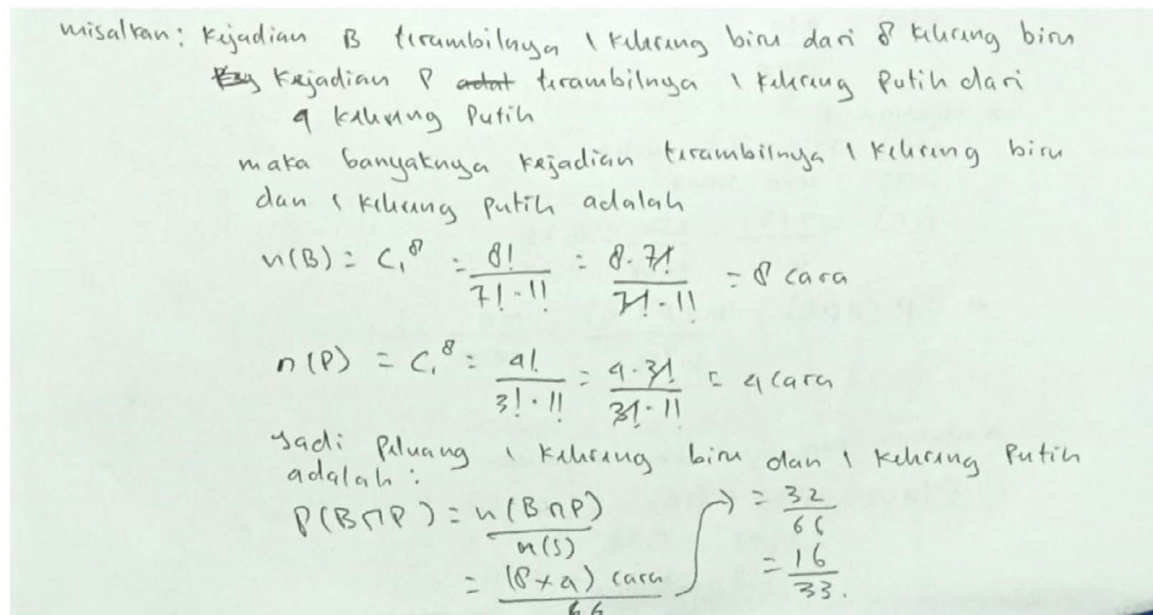 misalkan : Kejadian B terambilnya 1 kelereng biru dari 8 kelereng biru
Kejadian P adat terambilnya 1 kelereng Putih dari
4 kelereng Putih
maka banyaknya kejadian terambilnya 1 kelereng biru
dan 1 kelereng putih adalah
n(B) = C₁⁸ = 8! / 7! · 1! = 8 · 7! / 7! · 1! = 8 cara
n(P) = C₁⁸ = 4! / 3! · 1! = 4 · 3! / 3! · 1! = 4 cara
Jadi Peluang 1 kelereng biru dan 1 kelereng Putih
adalah :
P(B∩P) = n(B∩P) / n(S)
= (8 × 4) cara / 66
= 32 / 66
= 16 / 33.